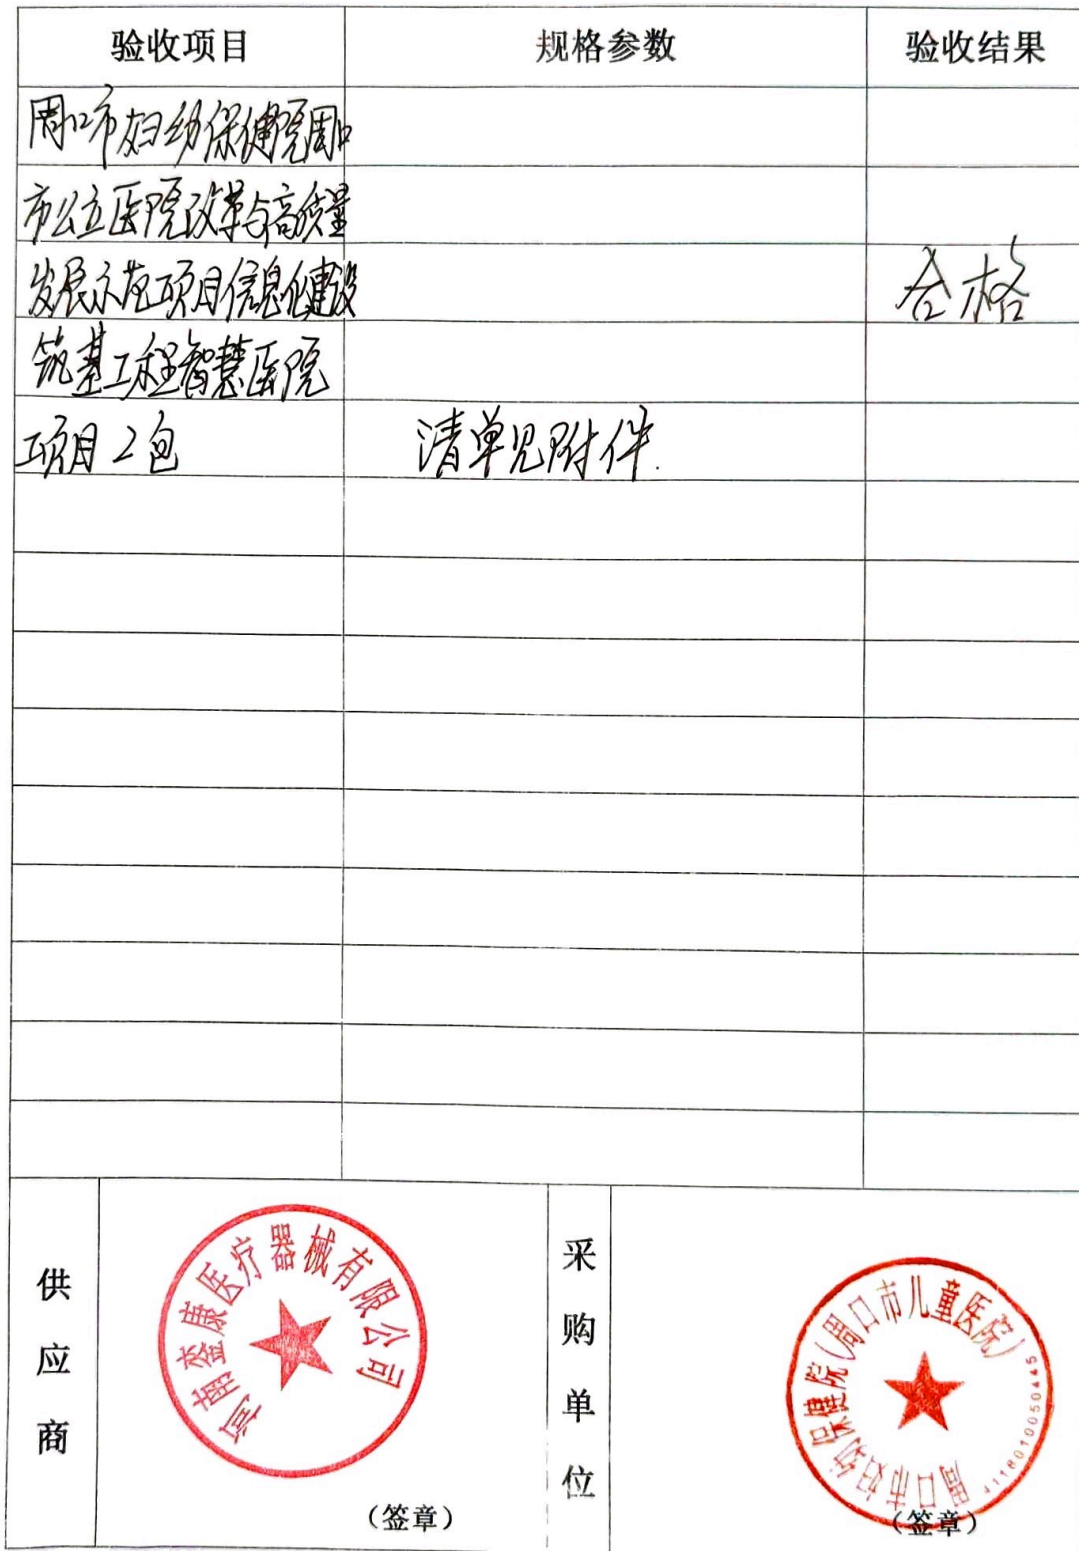 验收项目 规格参数 验收结果
周口市妇幼保健院周口
市公立医院改革与高质量
发展示范项目信息化建设 合格
筑基工程智慧医院
项目2包 清单见附件.
供应商
河南鑫康医疗器械有限公司
（签章）
采购单位
周口市妇幼保健院（周口市儿童医院）
4118010050445
（签章）